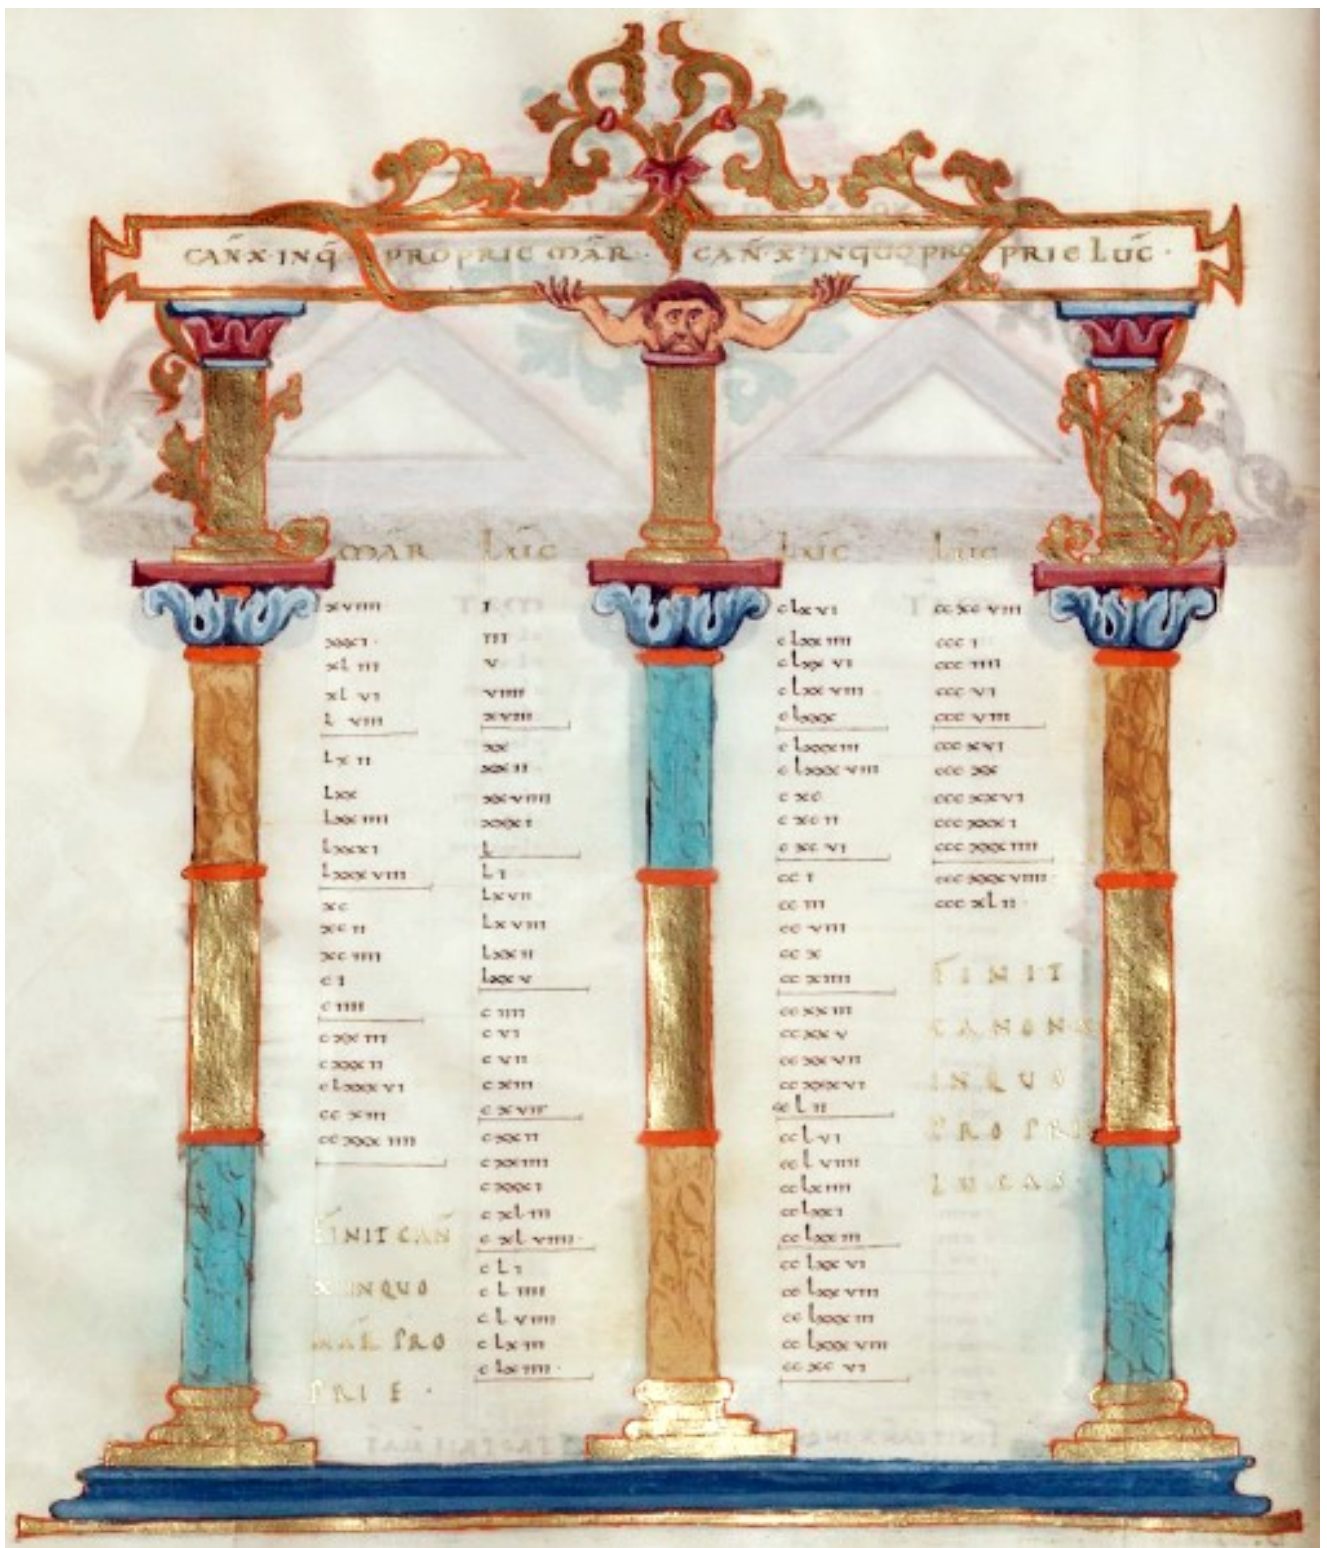 CAN̄·X·INQ̄ PROPRIE MAR̄· CAN̄·X·INQUO PROPRIE LUC̄·
MAR̄
xviiii
xxxi·
xliii
xlvi
lviii
lxii
lxx
lxxiiii
lxxxi
lxxxviii
xc
xcii
xciiii
ci
ciiii
cxxiii
cxxxii
clxxxvi
ccxiii
ccxxxiiii
FINIT CAN̄
X INQUO
MAR̄ PRO
PRIE·
LUC̄
i
iii
v
viiii
xviii
xx
xxii
xxviiii
xxxi
l
li
lxvii
lxviii
lxxii
lxxv
ciiii
cvi
cvii
cxiii
cxvii
cxxii
cxxiiii
cxxxi
cxliii
cxlviiii·
cli
cliiii
clviiii
clxiii
clxiiii·
LUC̄
clxvi
clxxiiii
clxxvi
clxxviii
clxxx
clxxxiii
clxxxviii
cxc
cxcii
cxcvi
cci
cciii
ccviii
ccx
ccxiiii
ccxxiii
ccxxv
ccxxvii
ccxxxvi
cclii
cclvi
cclviiii
cclxiiii
cclxxi
cclxxiii
cclxxvi
cclxxviii
cclxxxiii
cclxxxviii
ccxcvi
LUC̄
ccxcviii
ccci
ccciiii
cccvi
cccviii
cccxvi
cccxx
cccxxvi
cccxxxi
cccxxxiiii
cccxxxviiii
cccxlii·
FINIT
CANON X
INQUO
PROPRIE
LUCAS·